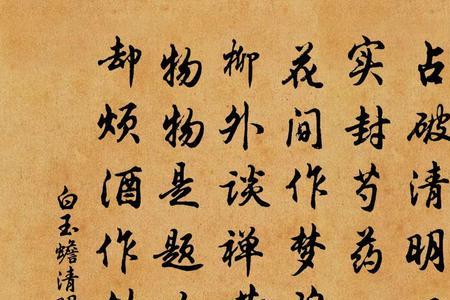 占破清明
实封芍药
花间作梦
柳外谈禅
物物是题
却烦酒作
白玉蟾清明